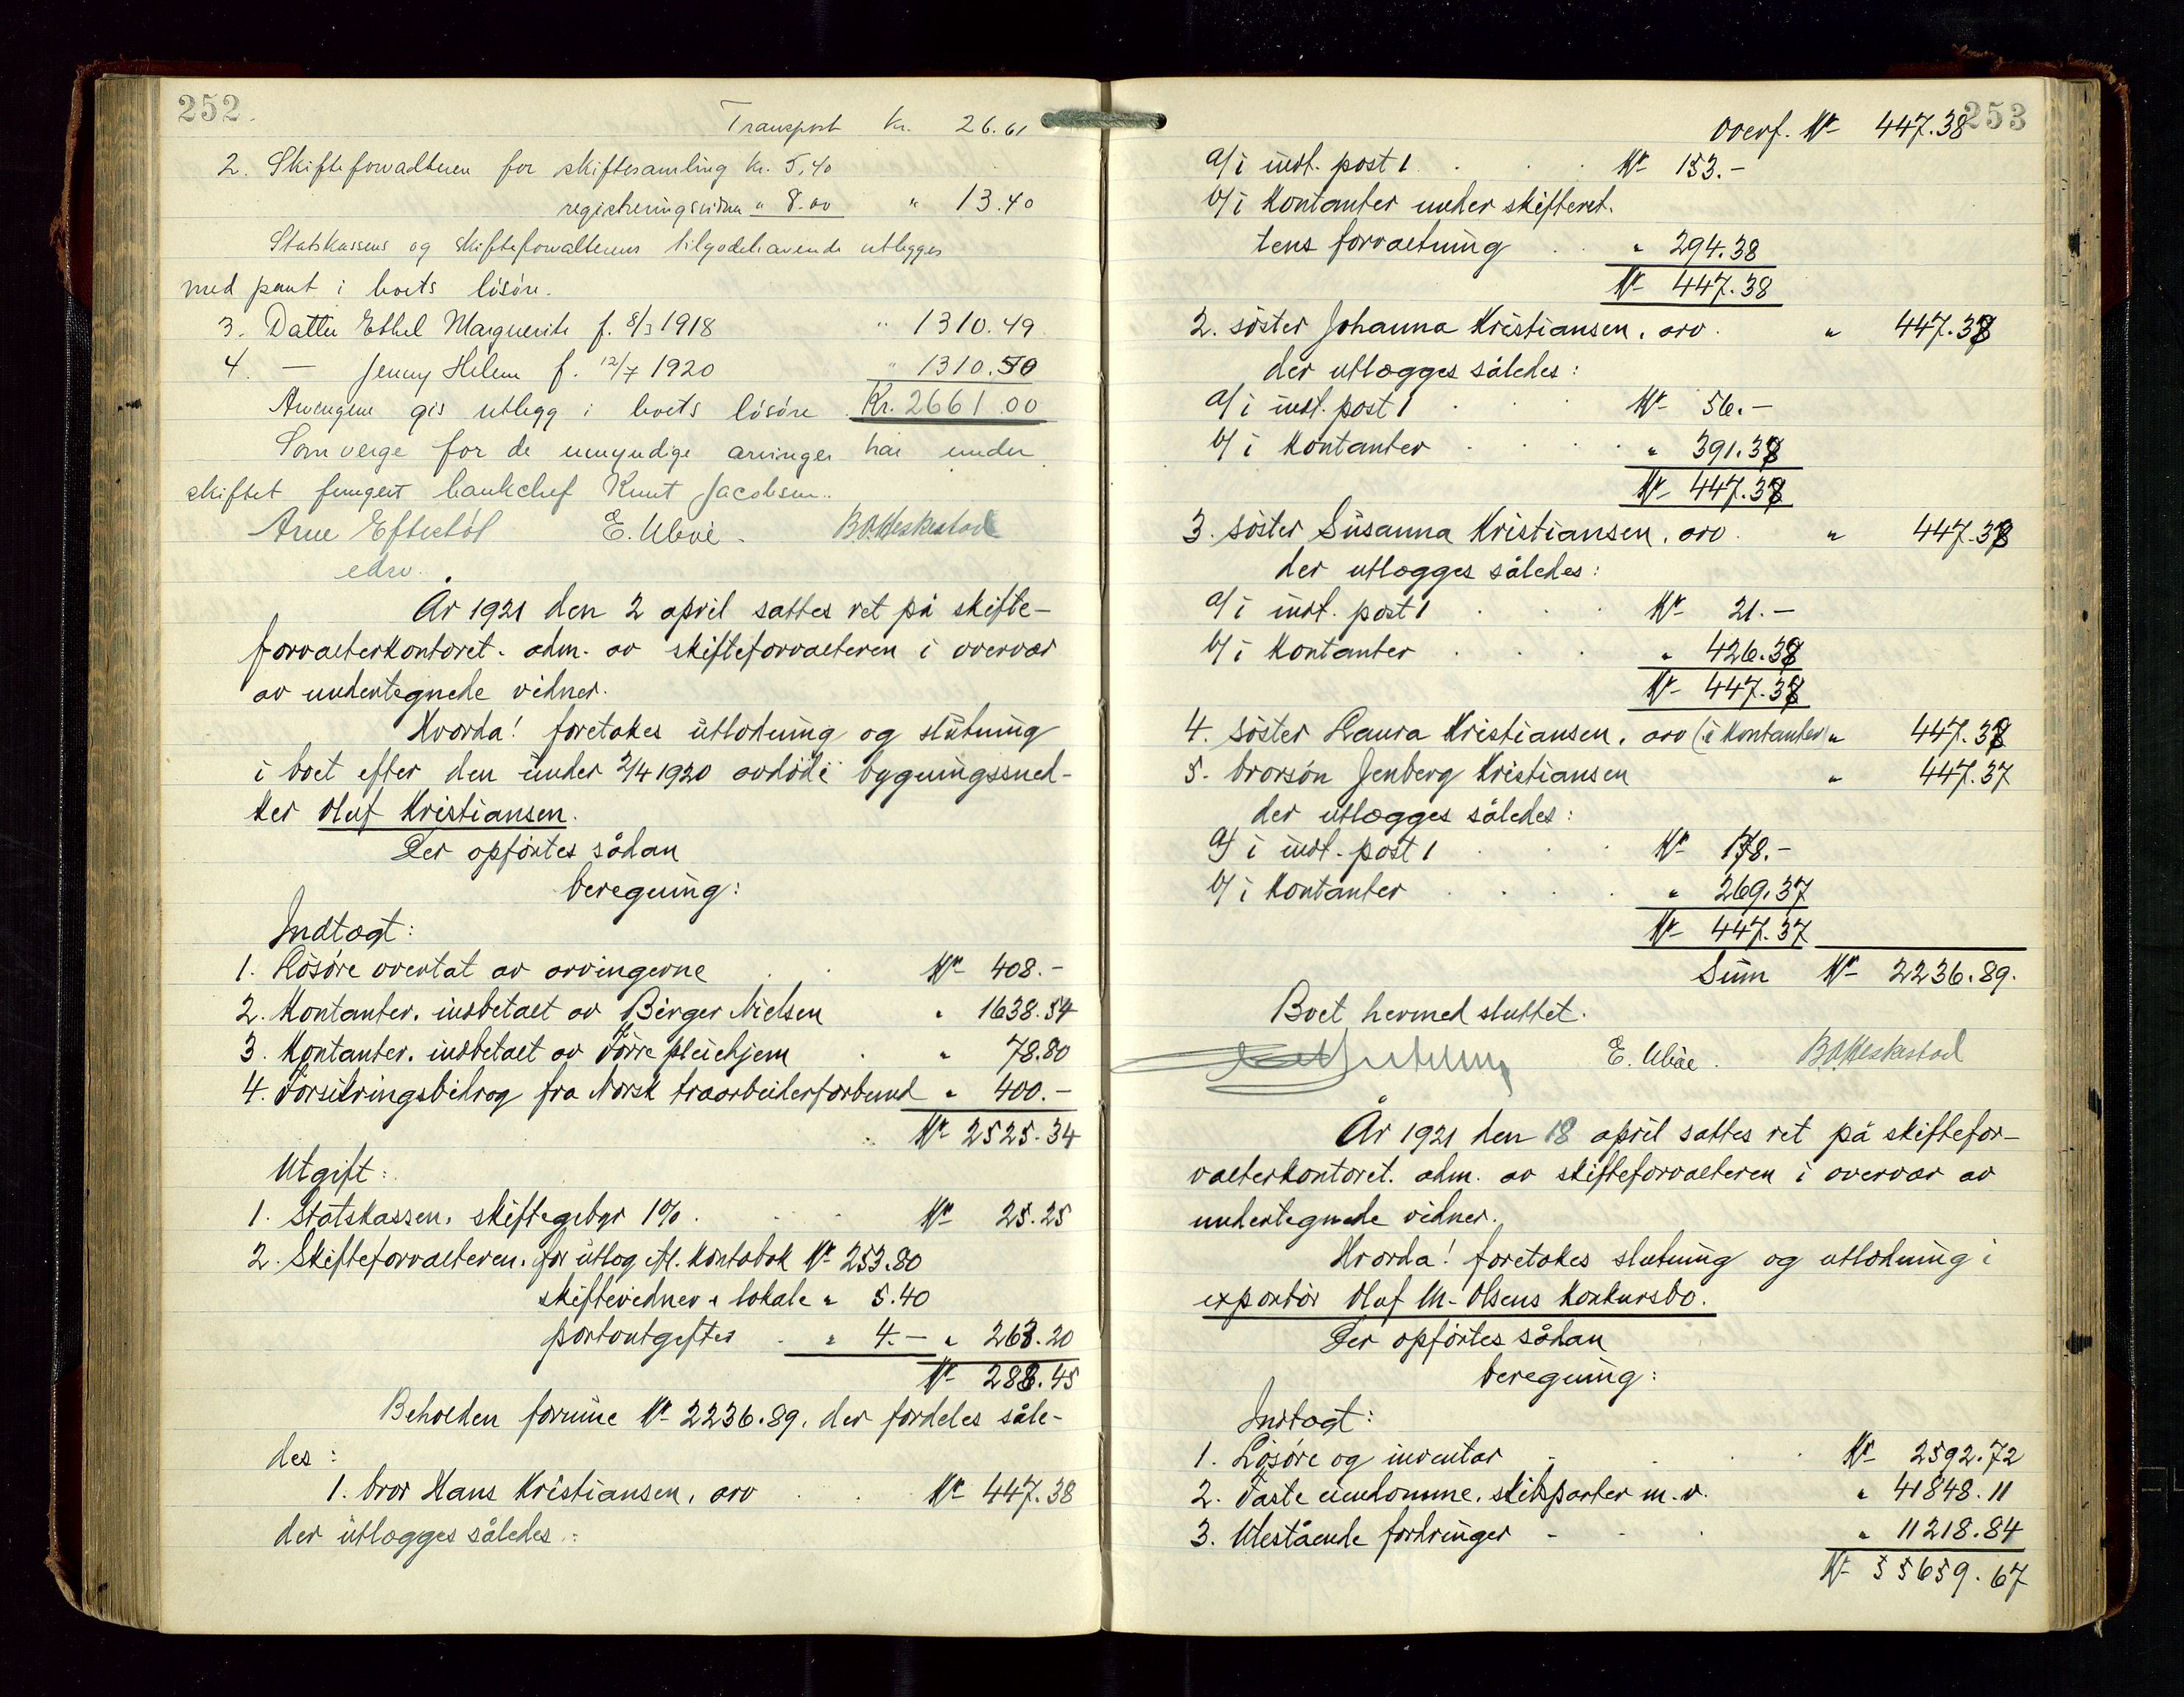 252.
Transport Kr. 26.61
2. Skifteforvalteren for skiftesamling Kr. 5,40
registreringsvidner " 8.00 " 13.40
Statskassens og skifteforvalterens tilgodehavende utlegges
med pant i boets lösöre.
3. Datter Ethel Marguerite f. 8/3 1918 " 1310.49
4. — Jenny Helene f. 12/7 1920 " 1310.50
Arvingene gis utlegg i boets lösöre Kr. 2661.00
Som verge for de umyndige arvinger har under
skiftet fungert bankchef Knut Jacobsen.
Arne Eftestöl E. Ubøe. B.O. Heskestad
edsv.
År 1921 den 2 april sattes ret på skifte-
forvalterkontoret. adm. av skifteforvalteren i overvær
av undertegnede vidner.
Hvorda! foretokes utlodning og slutning
i boet efter den under 2/4 1920 avdöde bygningssned-
ker Oluf Kristiansen.
Der opförtes sådan
beregning:
Indtægt:
1. Lösöre overtat av arvingerne Kr 408.-
2. Kontanter. indbetalt av Birger Nielsen " 1638.54
3. Kontanter. indbetalt av Törre pleiehjem " 78.80
4. Forsikringsbidrag fra Norsk træarbeiderforbund " 400.-
Kr 2525.34
Utgift:
1. Statskassen, skiftegebyr 1% Kr 25.25
2. Skifteforvalteren. for utlæg efl. kontobok Kr 253.80
skiftevidner & lokale " 5.40
portoutgifter " 4.- " 263.20
Kr 288.45
Beholden formue Kr 2236.89. der fordeles såle-
des:
1. bror Hans Kristiansen, arv Kr 447.38
der utlægges således:
253
overf. Kr 447.38
a/ i indt. post 1 Kr 153.-
b/ i kontanter under skifteret-
tens forvaltning " 294.38
Kr 447.38
2. söster Johanna Kristiansen, arv " 447.38
der utlægges således:
a/ i indt. post 1 Kr 56.-
b/ i kontanter " 391.38
Kr 447.38
3. söster Susanna Kristiansen, arv " 447.38
der utlægges således:
a/ i indt. post 1 Kr 21.-
b/ i kontanter " 426.38
Kr 447.38
4. söster Laura Kristiansen, arv (i kontanter) " 447.38
5. brorsön Jenberg Kristiansen " 447.37
der utlægges således:
a/ i indt. post 1 Kr 178.-
b/ i kontanter " 269.37
Kr 447.37
Sum Kr 2236.89.
Boet hermed sluttet.
E. Ubøe. B.O. Heskestad
År 1921 den 18 april sattes ret på skiftefor-
valterkontoret. adm. av skifteforvalteren i overvær av
undertegnede vidner.
Hvorda! foretokes slutning og utlodning i
exportör Oluf M. Olsens konkursbo.
Der opförtes sådan
beregning:
Indtægt:
1. Lösöre og inventar Kr 2592.72
2. Faste eiendomme, skibsparter m.v. " 41848.11
3. Utestående fordringer " 11218.84
Kr 55659.67